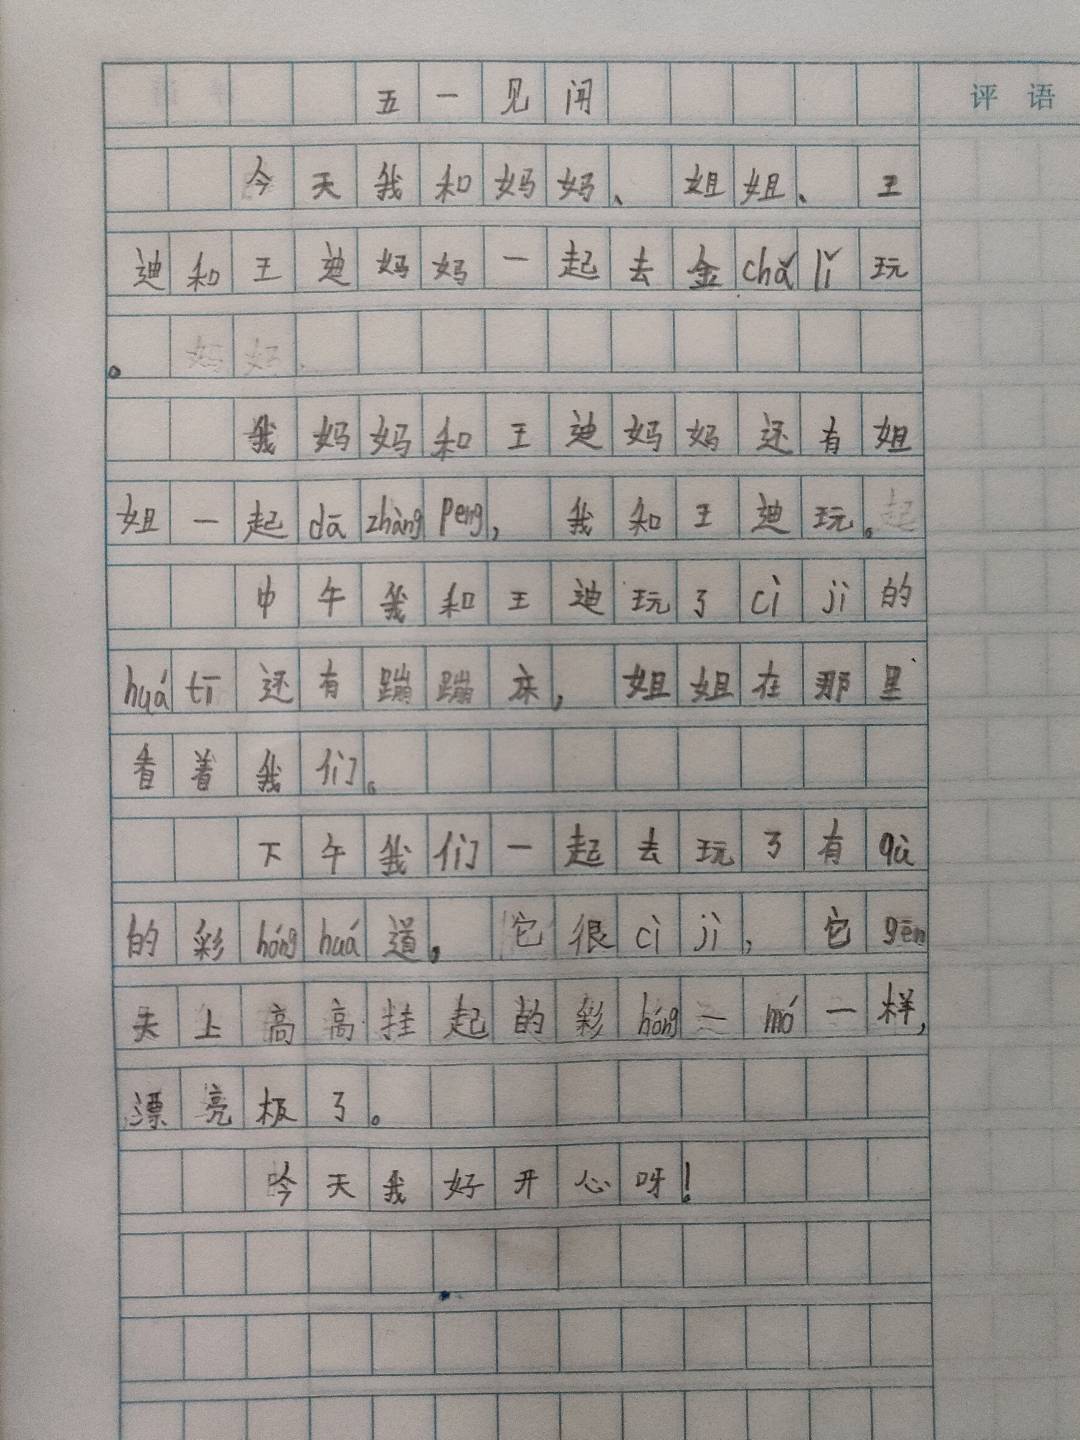 五一见闻
评语
今天我和妈妈、姐姐、王
迪和王迪妈妈一起去金chǎ lǐ玩
。妈好
我妈妈和王迪妈妈还有姐
姐一起dā zhàng peng,我和王迪玩。起
中午我和王迪玩了cì jì的
huá tī还有蹦蹦床,姐姐在那里
看着我们。
下午我们一起去玩了有qù
的彩hóng huá道。它很cì jì,它gēn
天上高高挂起的彩hóng一mó一样,
漂亮板了。
吟天我好开心呀!